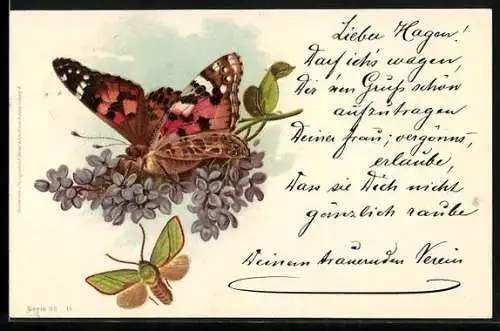 Lieber Hagen!
Darf ich's wagen,
Dir 'nen Gruß schön
aufzutragen
Deiner Frau; vergönns,
erlaube,
Dass sie Dich nicht
gänzlich raube
Deinem trauernden Verein
Serie 53